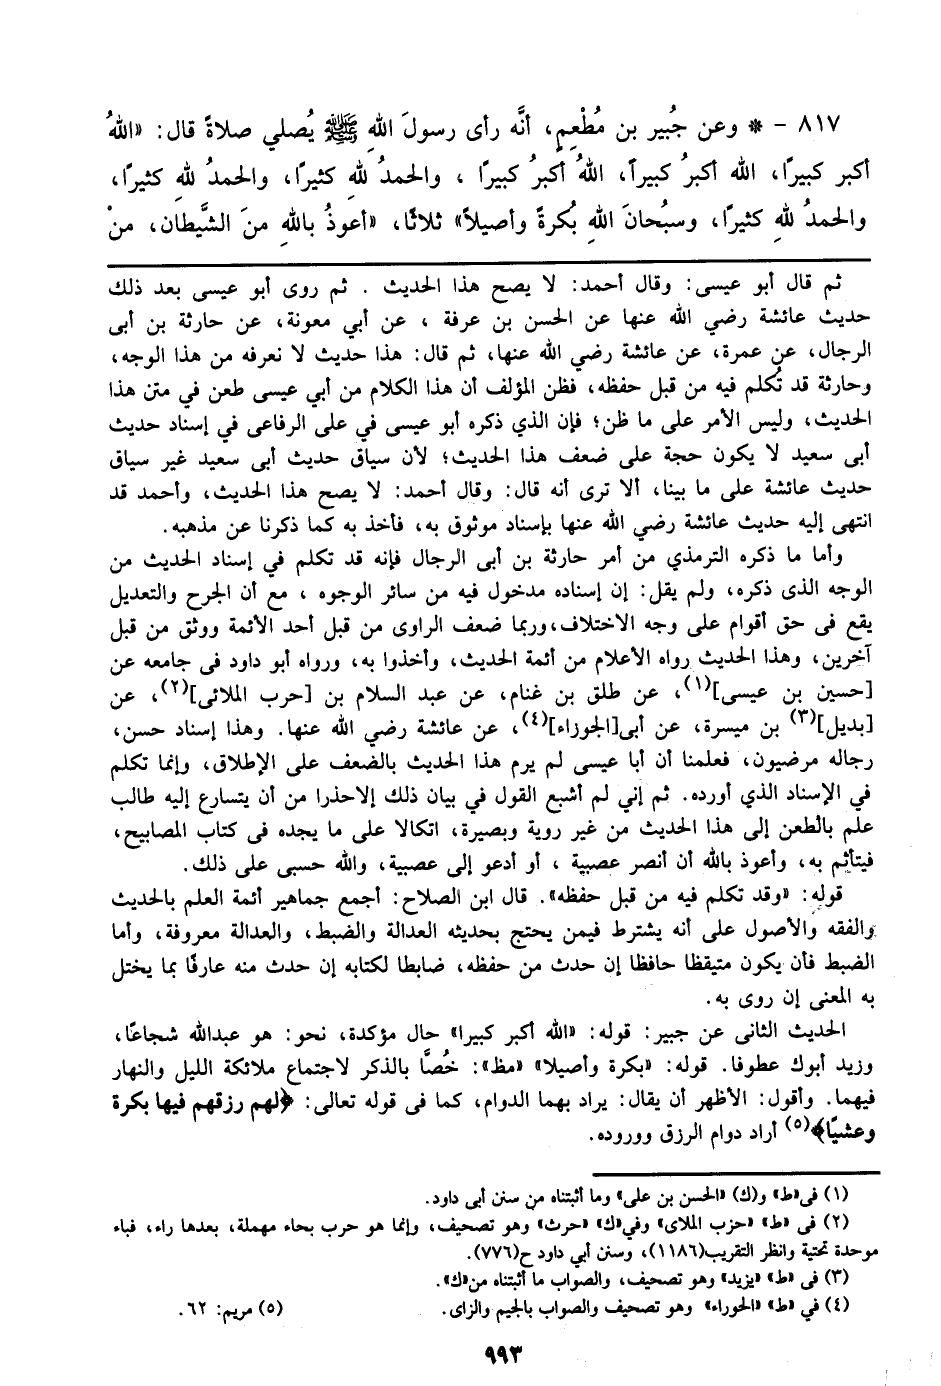 ٨١٧ – * وعن جُبير بن مُطْعِمٍ، أنَّه رأى رسولَ اللهِ ﷺ يُصلي صلاةً قال: «اللهُ
أكبر كبيرًا، الله أكبرُ كبيراً، اللهُ أكبرُ كبيرًا ، والحمدُ للهِ كثيرًا، والحمدُ للهِ كثيرًا،
والحمدُ للهِ كثيرًا، وسبُحانَ اللهِ بُكرةً وأصيلاً» ثلاثًا، «أعوذُ باللهِ منَ الشَّيطان، منْ
ثم قال أبو عيسى: وقال أحمد: لا يصح هذا الحديث . ثم روى أبو عيسى بعد ذلك
حديث عائشة رضي الله عنها عن الحسن بن عرفة ، عن أبي معونة، عن حارثة بن أبى
الرجال، عن عمرة، عن عائشة رضي الله عنها، ثم قال: هذا حديث لا نعرفه من هذا الوجه،
وحارثة قد تُكلم فيه من قبل حفظه، فظن المؤلف أن هذا الكلام من أبي عيسى طعن في متن هذا
الحديث، وليس الأمر على ما ظن؛ فإن الذي ذكره أبو عيسى في على الرفاعى في إسناد حديث
أبى سعيد لا يكون حجة على ضعف هذا الحديث؛ لأن سياق حديث أبى سعيد غير سياق
حديث عائشة على ما بينا، ألا ترى أنه قال: وقال أحمد: لا يصح هذا الحديث، وأحمد قد
انتهى إليه حديث عائشة رضي الله عنها بإسناد موثوق به، فأخذ به كما ذكرنا عن مذهبه.
وأما ما ذكره الترمذي من أمر حارثة بن أبى الرجال فإنه قد تكلم في إسناد الحديث من
الوجه الذى ذكره، ولم يقل: إن إسناده مدخول فيه من سائر الوجوه ، مع أن الجرح والتعديل
يقع فى حق أقوام على وجه الاختلاف،وربما ضعف الراوى من قبل أحد الأئمة ووثق من قبل
آخرين، وهذا الحديث رواه الأعلام من أئمة الحديث، وأخذوا به، ورواه أبو داود فى جامعه عن
[حسين بن عيسى](١)، عن طلق بن غنام، عن عبد السلام بن [حرب الملائى](٢)، عن
[بديل](٣) بن ميسرة، عن أبى[الجوزاء](٤)، عن عائشة رضي الله عنها. وهذا إسناد حسن،
رجاله مرضيون، فعلمنا أن أبا عيسى لم يرم هذا الحديث بالضعف على الإطلاق، وإنما تكلم
في الإسناد الذي أورده. ثم إني لم أشبع القول في بيان ذلك إلاحذرا من أن يتسارع إليه طالب
علم بالطعن إلى هذا الحديث من غير روية وبصيرة، اتكالا على ما يجده فى كتاب المصابيح،
فيتأثم به، وأعوذ بالله أن أنصر عصبية ، أو أدعو إلى عصبية، والله حسبى على ذلك.
قوله: «وقد تكلم فيه من قبل حفظه». قال ابن الصلاح: أجمع جماهير أئمة العلم بالحديث
والفقه والأصول على أنه يشترط فيمن يحتج بحديثه العدالة والضبط، والعدالة معروفة، وأما
الضبط فأن يكون متيقظا حافظا إن حدث من حفظه، ضابطا لكتابه إن حدث منه عارفًا بما يختل
به المعنى إن روى به.
الحديث الثانى عن جبير: قوله: «الله أكبر كبيرا» حال مؤكدة، نحو: هو عبدالله شجاعًا،
وزيد أبوك عطوفا. قوله: «بكرة وأصيلا» «مظ»: خُصَّا بالذكر لاجتماع ملائكة الليل والنهار
فيهما. وأقول: الأظهر أن يقال: يراد بهما الدوام، كما فى قوله تعالى: ﴿لهم رزقهم فيها بكرة
وعشيًا﴾(٥) أراد دوام الرزق ووروده.
(١) فى«ط» و(ك) «الحسن بن على» وما أثبتناه من سنن أبى داود.
(٢) فى «ط» «حزب الملاى» وفي«ك» «حرث» وهو تصحيف، وإنما هو حرب بحاء مهملة، بعدها راء، فباء
موحدة تحتية وانظر التقريب(١١٨٦)، وسنن أبي داود ح(٧٧٦).
(٣) فى «ط» «يزيد» وهو تصحيف، والصواب ما أثبتناه من«ك».
(٤) في «ط» «الحوراء» وهو تصحيف والصواب بالجيم والزاى. (٥) مريم: ٦٢.
٩٩٣